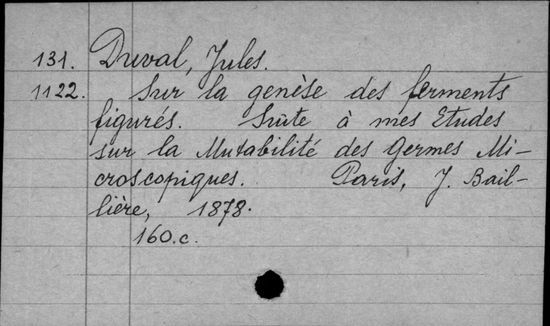 131. Duval, Jules.
1122. Sur la genèse des ferments
figurés. Suite à mes Etudes
sur la Mutabilité des Germes Mi-
croscopiques. Paris, J. Bail-
lière, 1878.
160.c.